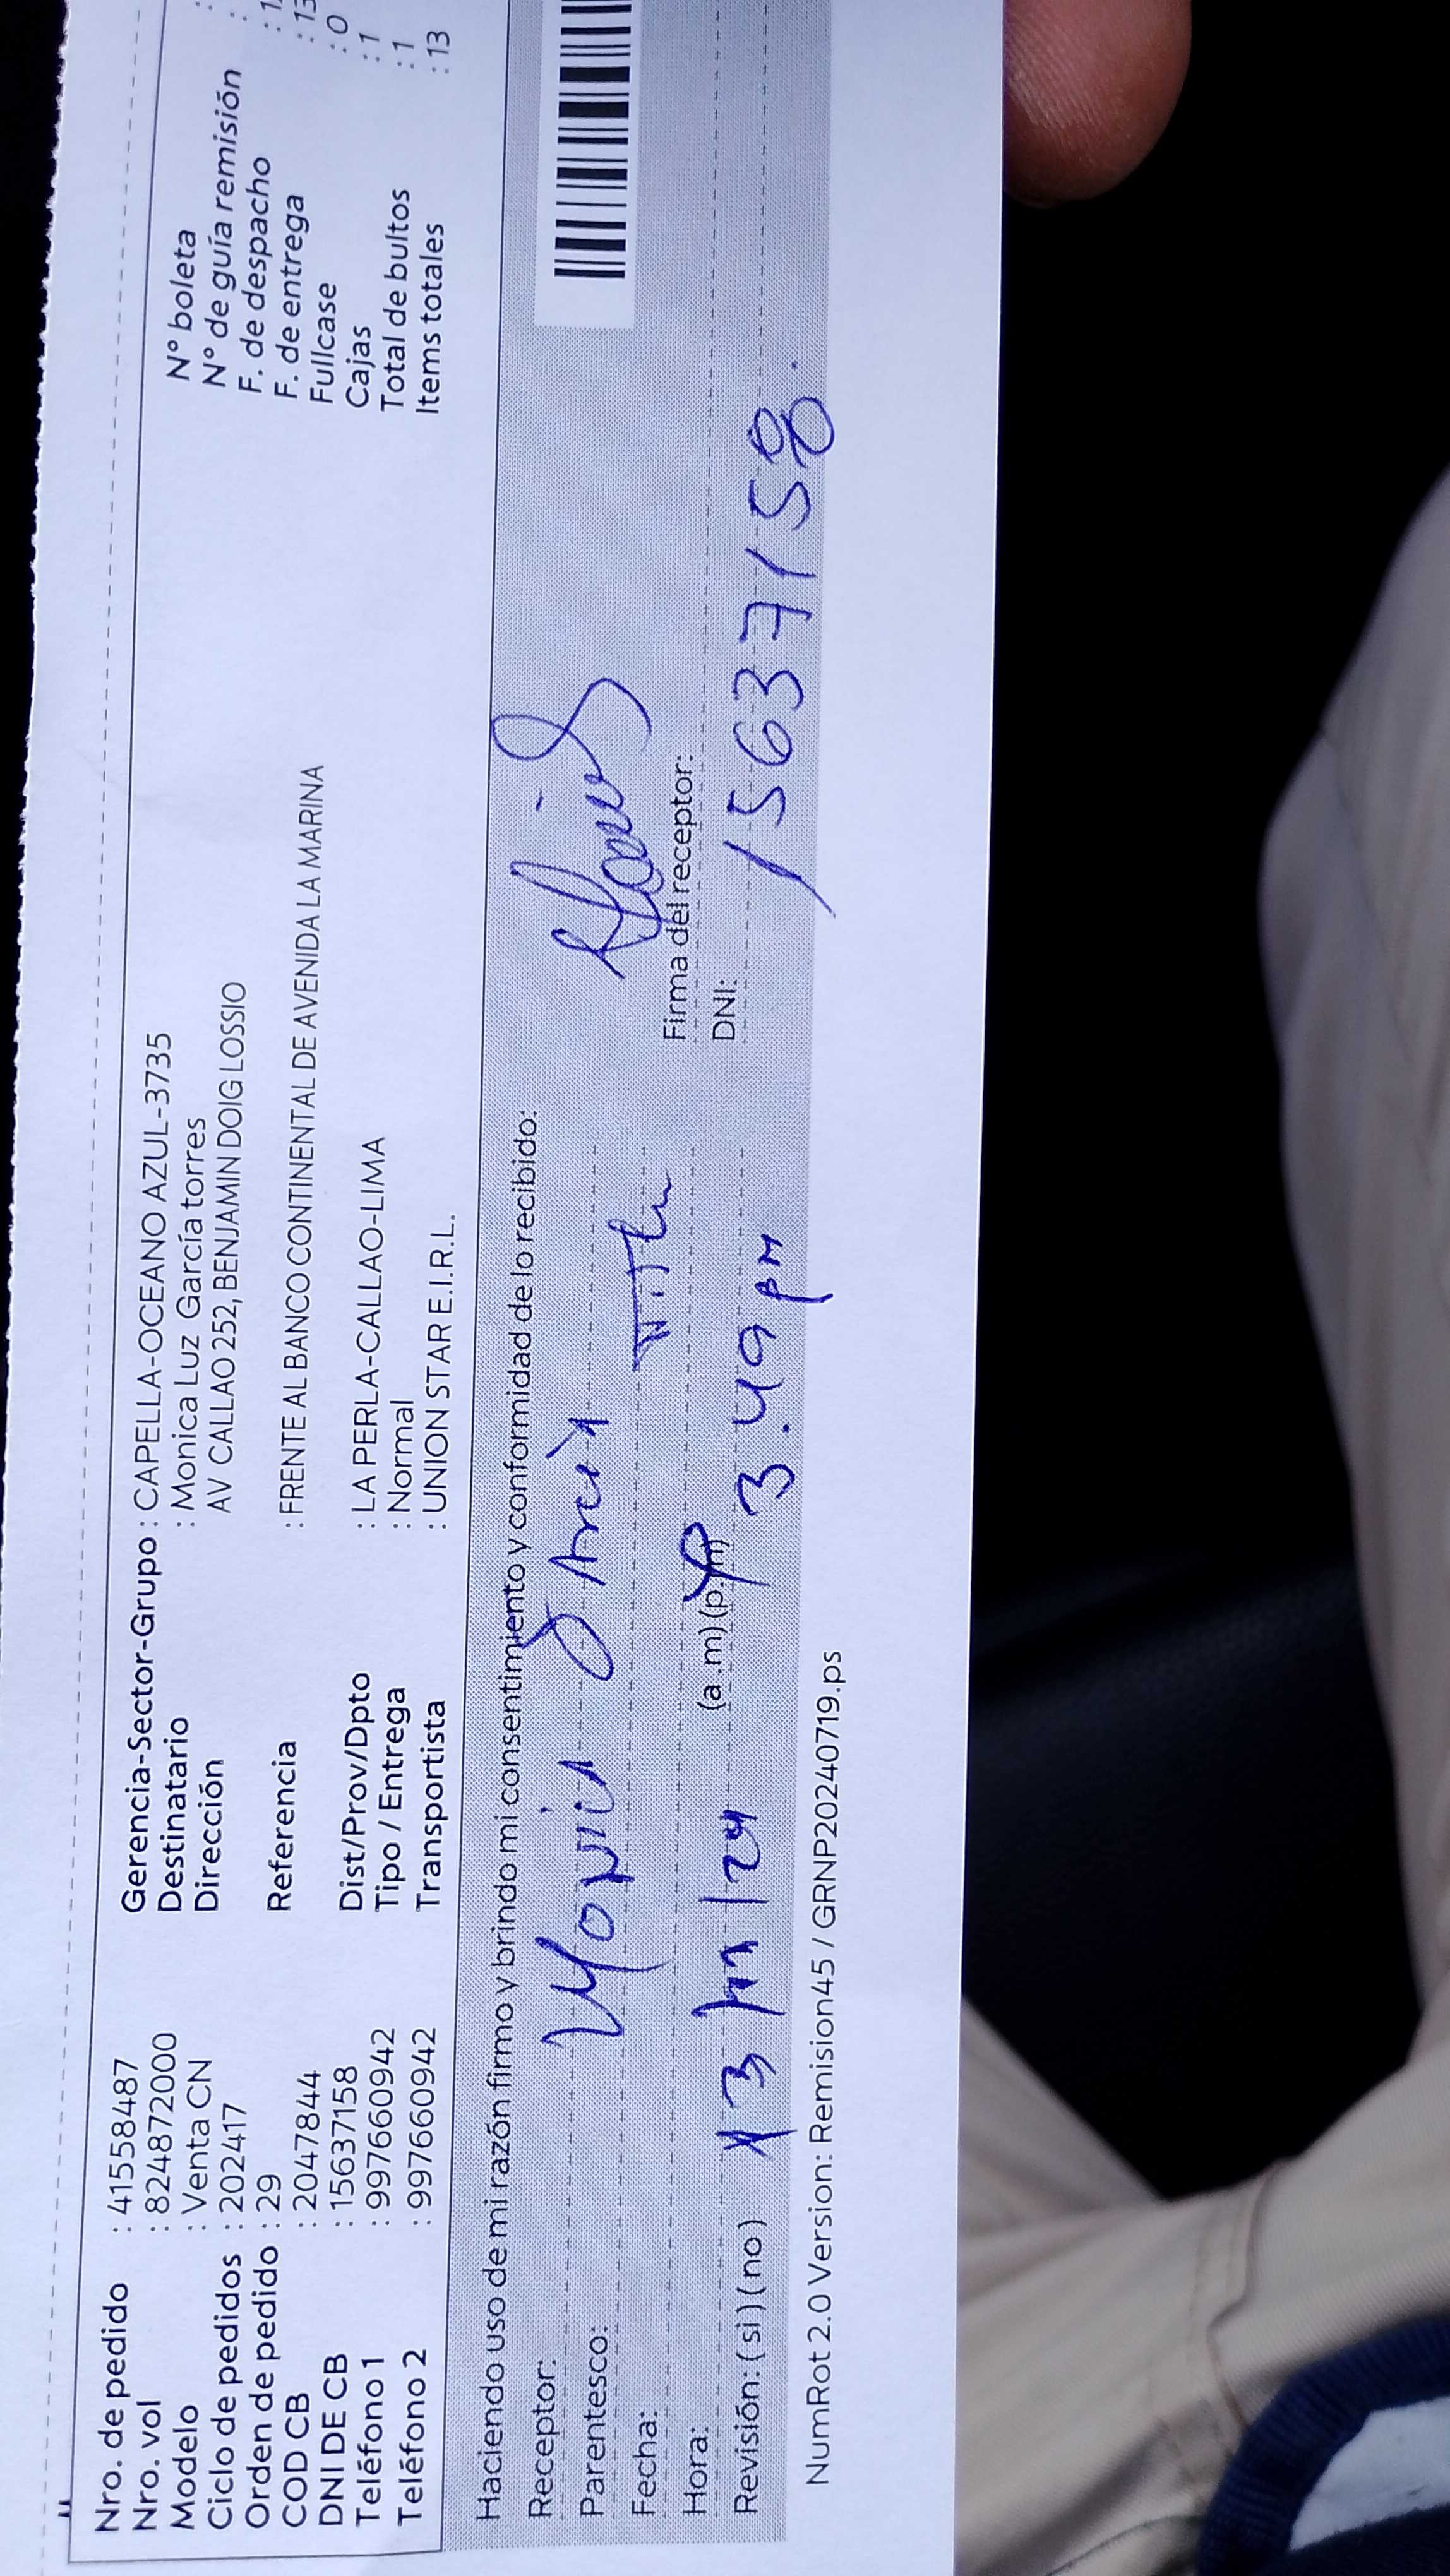 Nro. de pedido : 41558487
Nro. vol : 824872000
Modelo : Venta CN
Ciclo de pedidos : 202417
Orden de pedido : 29
COD CB : 2047844
DNI DE CB : 15637158
Teléfono 1 : 997660942
Teléfono 2 : 997660942
Gerencia-Sector-Grupo : CAPELLA-OCEANO AZUL-3735
Destinatario : Monica Luz García torres
Dirección AV CALLAO 252, BENJAMIN DOIG LOSSIO
Referencia : FRENTE AL BANCO CONTINENTAL DE AVENIDA LA MARINA
Dist/Prov/Dpto : LA PERLA-CALLAO-LIMA
Tipo / Entrega : Normal
Transportista : UNION STAR E.I.R.L.
N° boleta :
N° de guía remisión :
F. de despacho : 1
F. de entrega : 13
Fullcase : 0
Cajas : 1
Total de bultos : 1
Items totales : 13
Haciendo uso de mi razón firmo y brindo mi consentimiento y conformidad de lo recibido:
Receptor:
Parentesco:
Fecha:
Hora: (a.m) (p.m)
Revisión: (si) (no) 3.49 pm
Firma del receptor:
DNI: 15637158.
NumRot 2.0 Version: Remision45 / GRNP20240719.ps